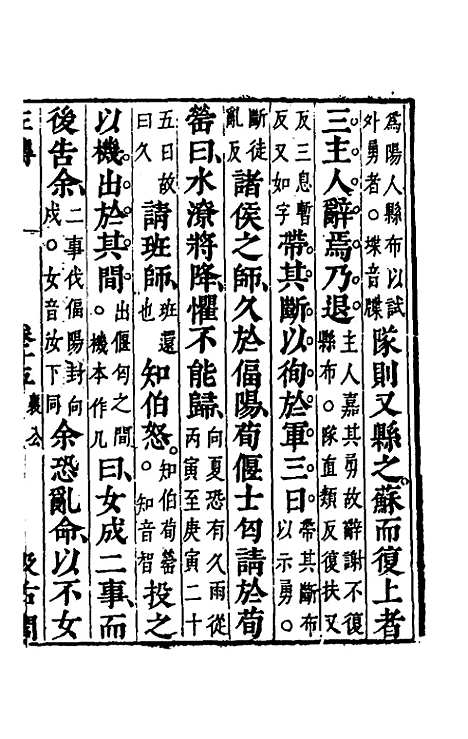 爲偪陽人縣布以試外勇者○堞音牒隊則又縣之蘇而復上者
三主人辭焉乃退主人嘉其勇故辭謝不復縣布○隊直類反復扶又
反三息暫反又如字帶其斷以徇於軍三日帶其斷布以示勇○
斷徒亂反諸侯之師久於偪陽荀偃士匄請於荀
罃曰水潦將降懼不能歸向夏恐有久雨從丙寅至庚寅二十
五日故曰久請班師班還也知伯怒知伯荀罃○知音智投之
以機出於其間出偃匄之間○機本作几曰女成二事而
後告余二事伐偪陽封向戌○女音汝下同余恐亂命以不女
卷十五 襄公
汲古閣